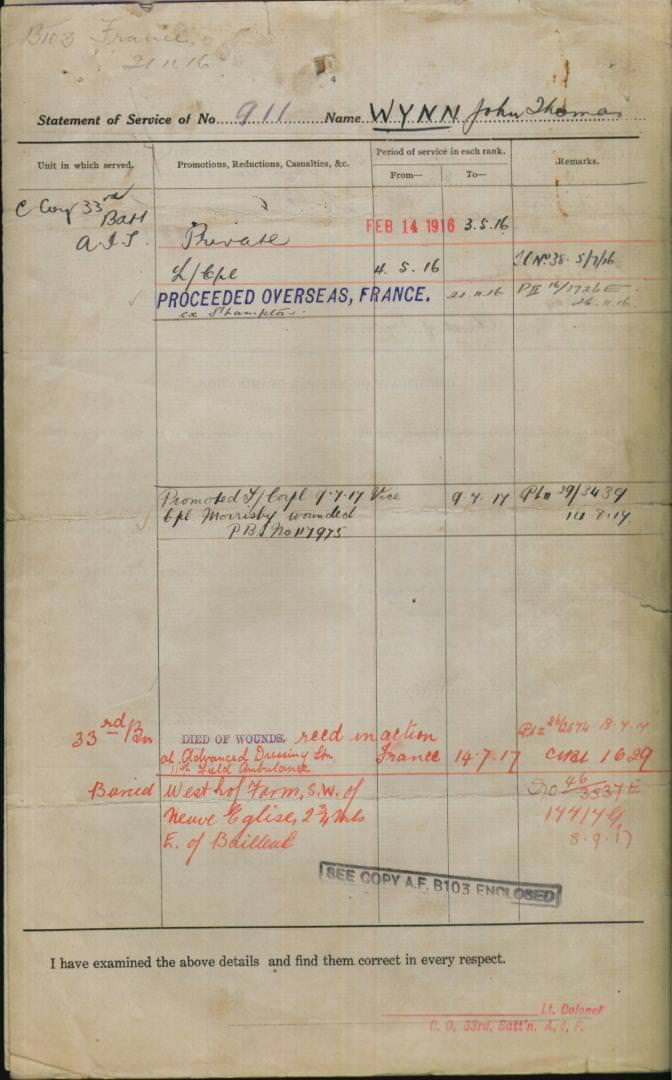 B103 France
21.11.16
4
Statement of Service of No. 911 Name WYNN John Thomas
Unit in which served. Promotions, Reductions, Casualties, &c. Period of service in each rank. Remarks.
From— To—
C Coy 33rd Batt A.I.F. Private FEB 14 1916 3.5.16
L/Cpl 4.5.16 38. 5/7/16
PROCEEDED OVERSEAS, FRANCE. 21.11.16 PII 16/1726E
ex S'hampton. 26.11.16
Promoted T/Corpl 9.7.17 Vice 9.7.17 39/3439
Cpl Morrisby wounded 14.8.17
No 117975
33rd Bn DIED OF WOUNDS. recd in action
at Advanced Dressing Stn France 14.7.17 1629
11th Field Ambulance
Buried West hof Farm, S.W. of 46/3537E
Neuve Eglise, 2 3/4 Mls
E. of Bailleul 8.9.17
SEE COPY A.F. B103 ENCLOSED
I have examined the above details and find them correct in every respect.
Lt. Colonel
C. O. 33rd. Batt'n. A. I. F.